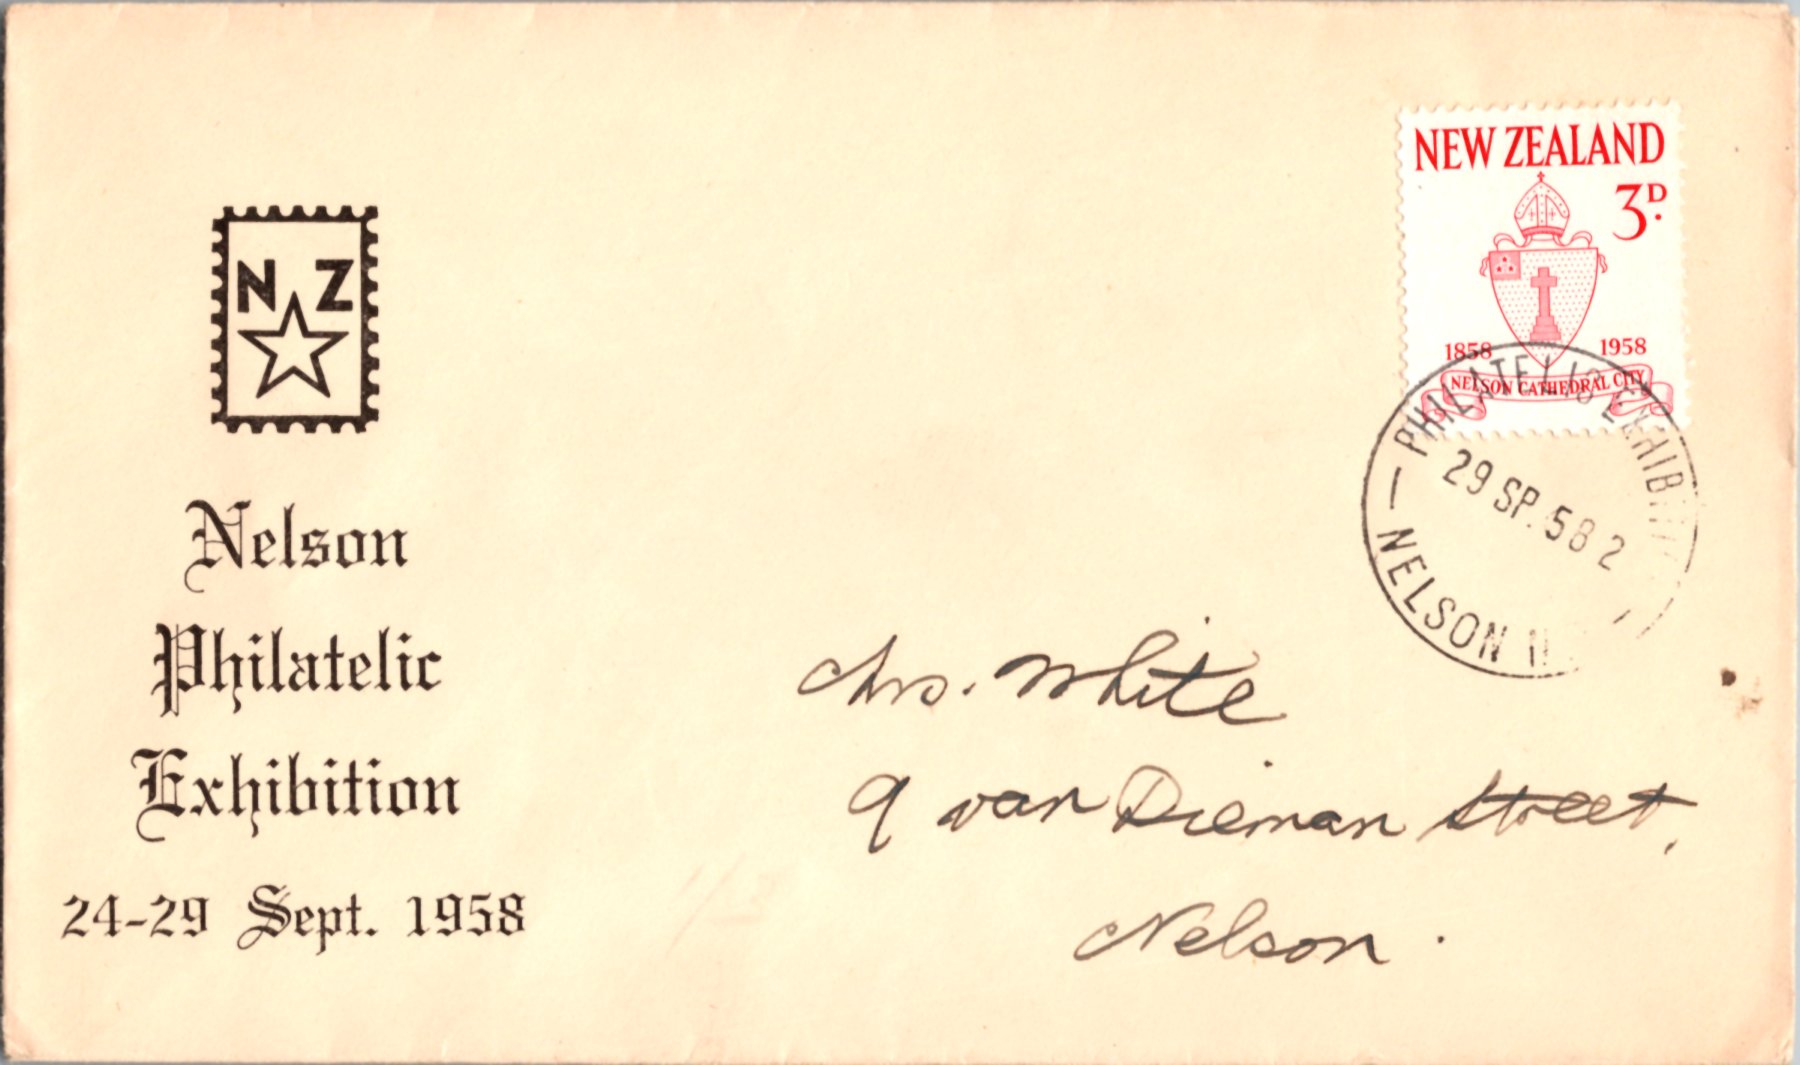 N Z
Nelson
Philatelic
Exhibition
24-29 Sept. 1958
NEW ZEALAND
3D.
1858 1958
NELSON CATHEDRAL CITY
PHILATELIC EXHIBI
29 SP. 58 2
NELSON N
Mrs. White
9 van Dieman Street,
Nelson.